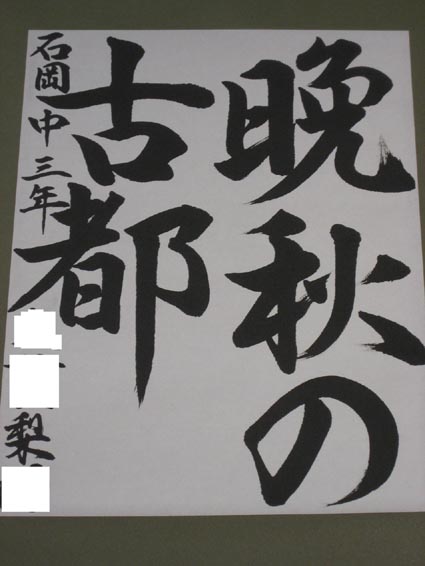 晩秋の
古都
石岡中三年 梨